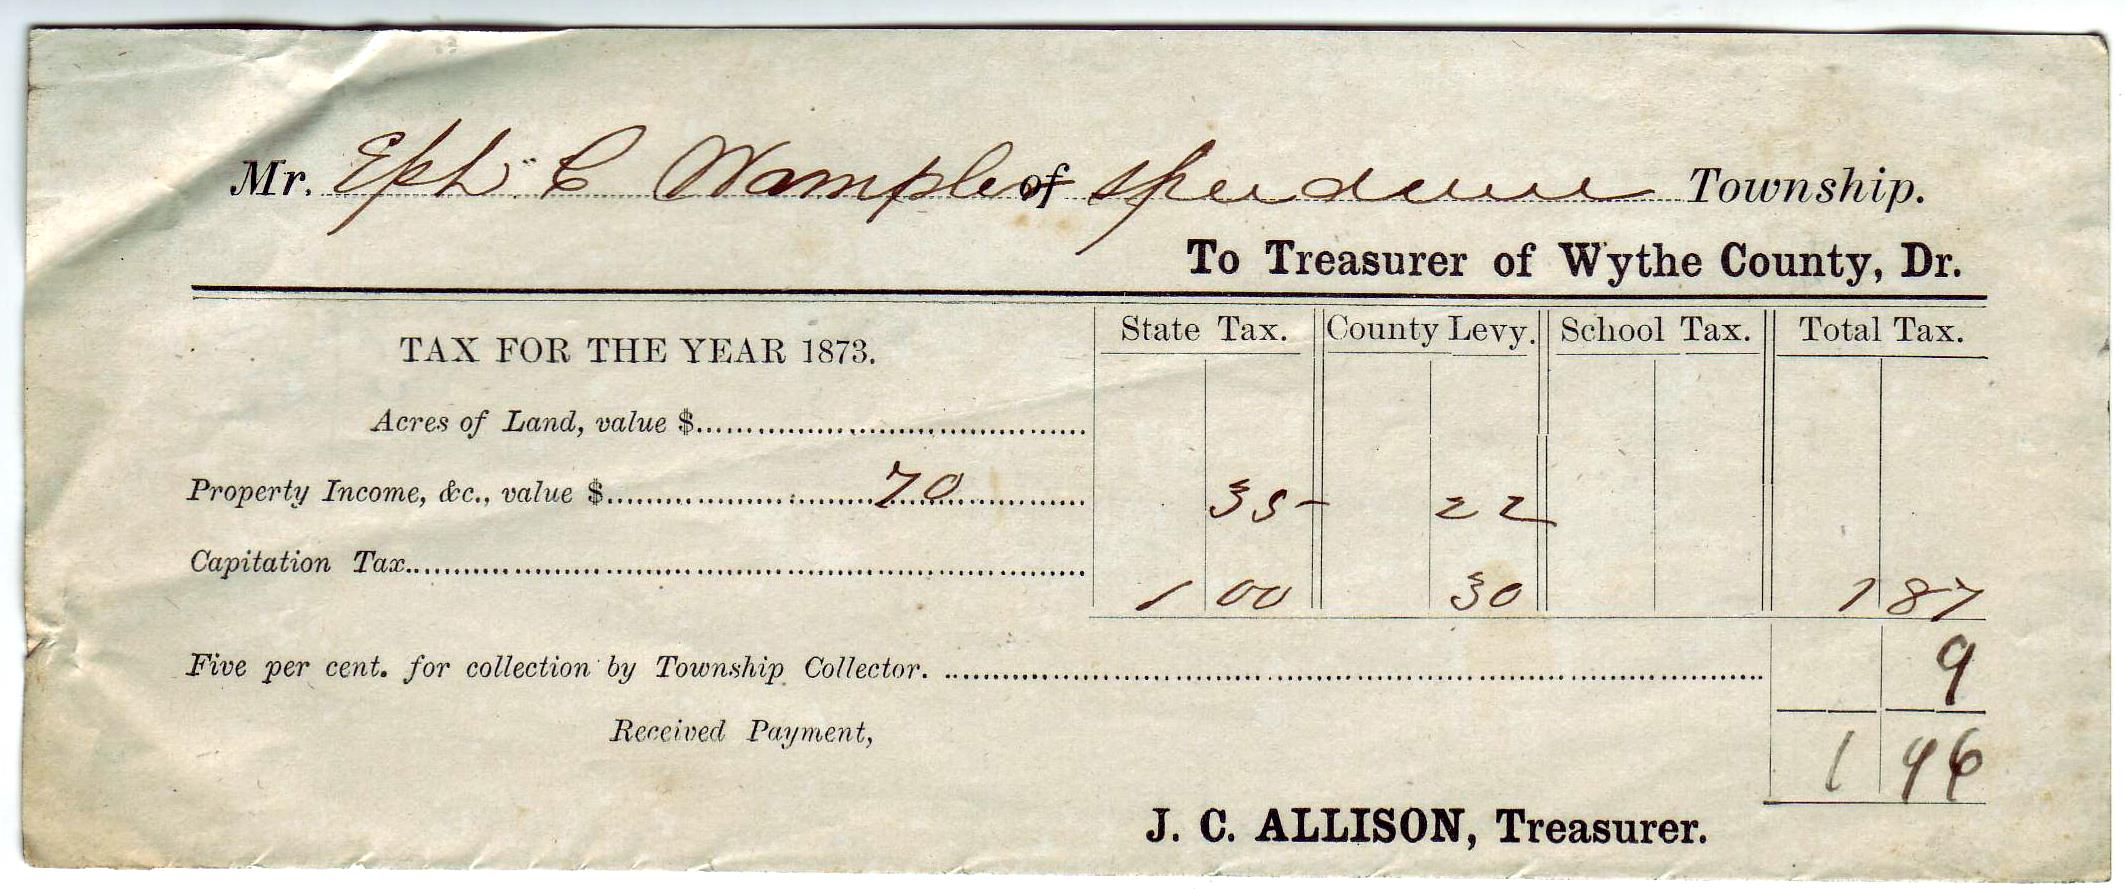 Mr. Eph C Wampler of Speedwell Township.
To Treasurer of Wythe County, Dr.
TAX FOR THE YEAR 1873. State Tax. County Levy. School Tax. Total Tax.
Acres of Land, value $
Property Income, &c., value $ 70 35 22
Capitation Tax. 1 00 30 1 87
Five per cent. for collection by Township Collector. 9
Received Payment, 1 96
J. C. ALLISON, Treasurer.